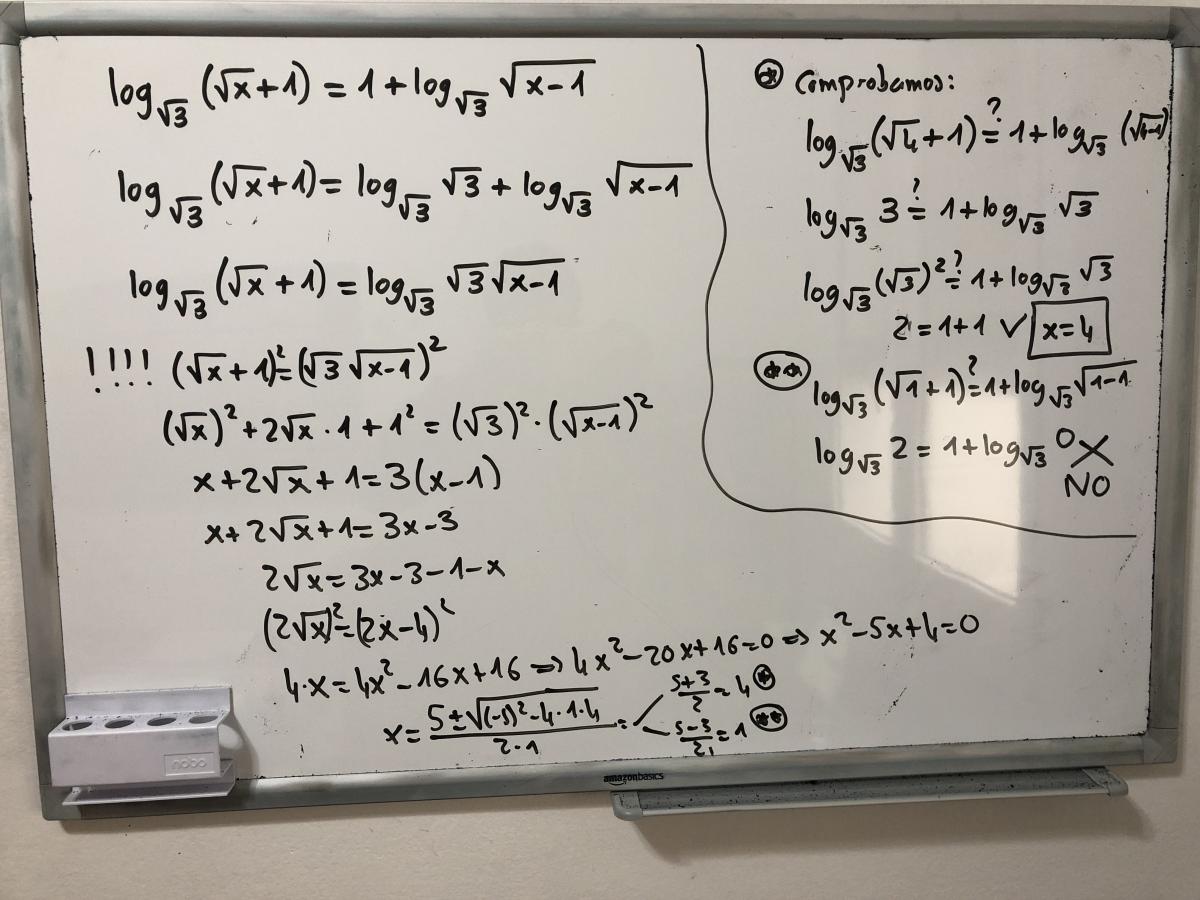 log_√3 (√x+1) = 1 + log_√3 √(x-1)
log_√3 (√x+1) = log_√3 √3 + log_√3 √(x-1)
log_√3 (√x+1) = log_√3 √3 √(x-1)
!!!! (√x+1)² = (√3 √(x-1))²
(√x)² + 2√x · 1 + 1² = (√3)² · (√(x-1))²
x + 2√x + 1 = 3(x-1)
x + 2√x + 1 = 3x - 3
2√x = 3x - 3 - 1 - x
(2√x)² = (2x-4)²
4·x = 4x² - 16x + 16 ⇒ 4x² - 20x + 16 = 0 ⇒ x² - 5x + 4 = 0
x = (5 ± √((-5)² - 4·1·4))/(2·1) =
(5+3)/2 = 4 (*)
(5-3)/2 = 1 (**)
(*) Comprobamos:
log_√3 (√4+1) =? 1 + log_√3 (√(4-1))
log_√3 3 =? 1 + log_√3 √3
log_√3 (√3)² =? 1 + log_√3 √3
2 = 1+1 ✓ x=4
(**) log_√3 (√1+1) =? 1 + log_√3 √(1-1)
log_√3 2 = 1 + log_√3 0 X
NO
nobo
amazonbasics